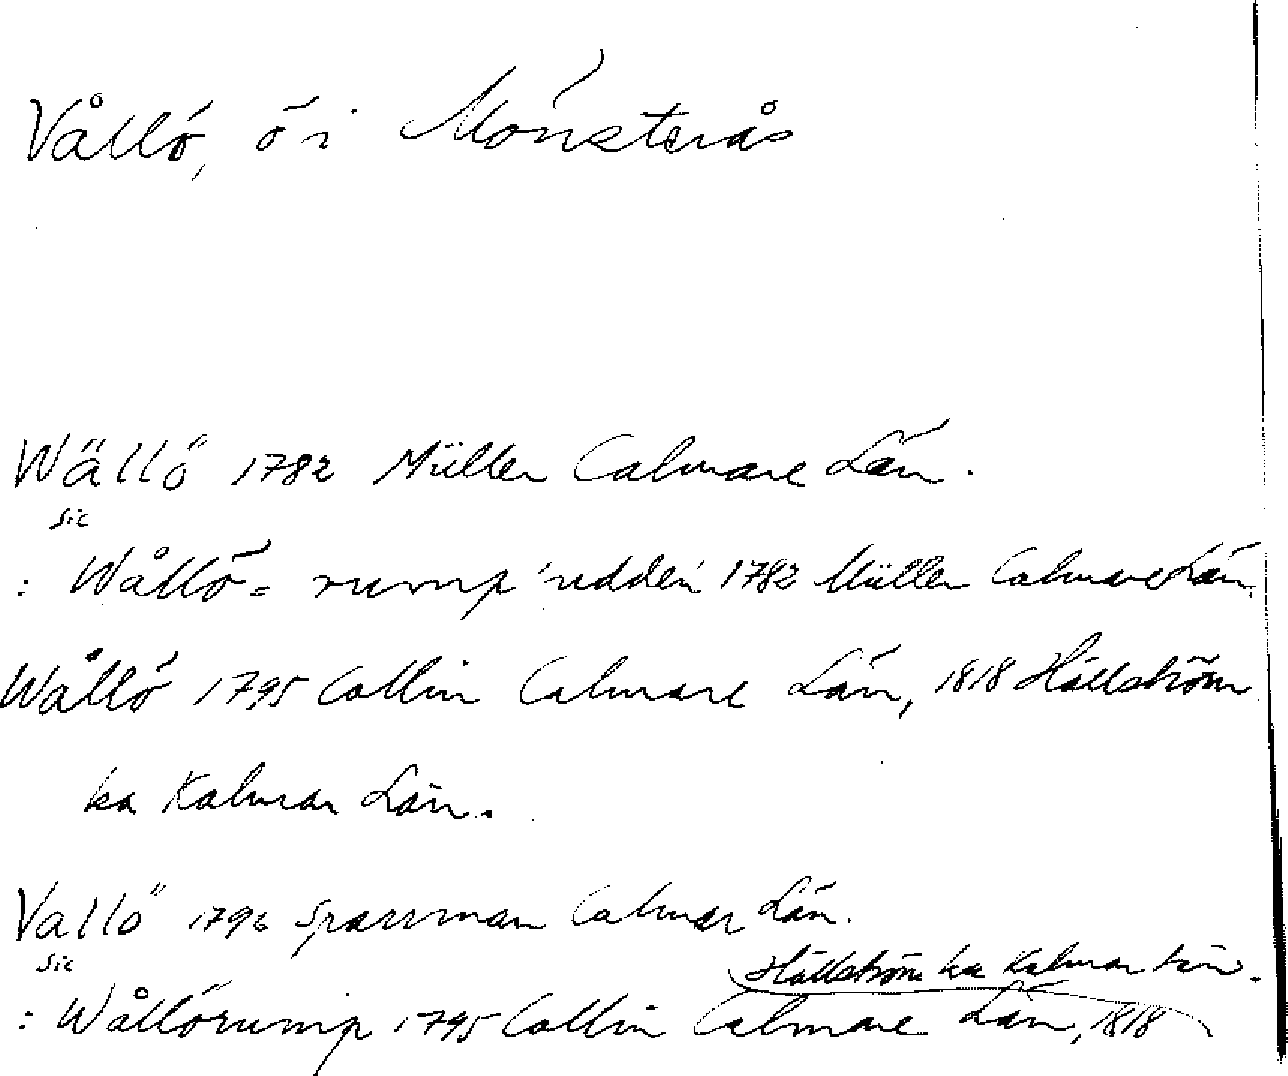 Vållö, ö i Mönsterås
Wällö 1782 Müller Calmare Län.
sic
: Wållö= rump 'udden' 1782 Müller Calmare Län,
Wållö 1795 Collin Calmare Län, 1818 Hällström
ka Kalmar Län.
Vallö 1796 Sparrman Calmar Län.
sic
: Wållörump 1795 Collin Calmare Län, 1818
Hällström ka Kalmar Län.